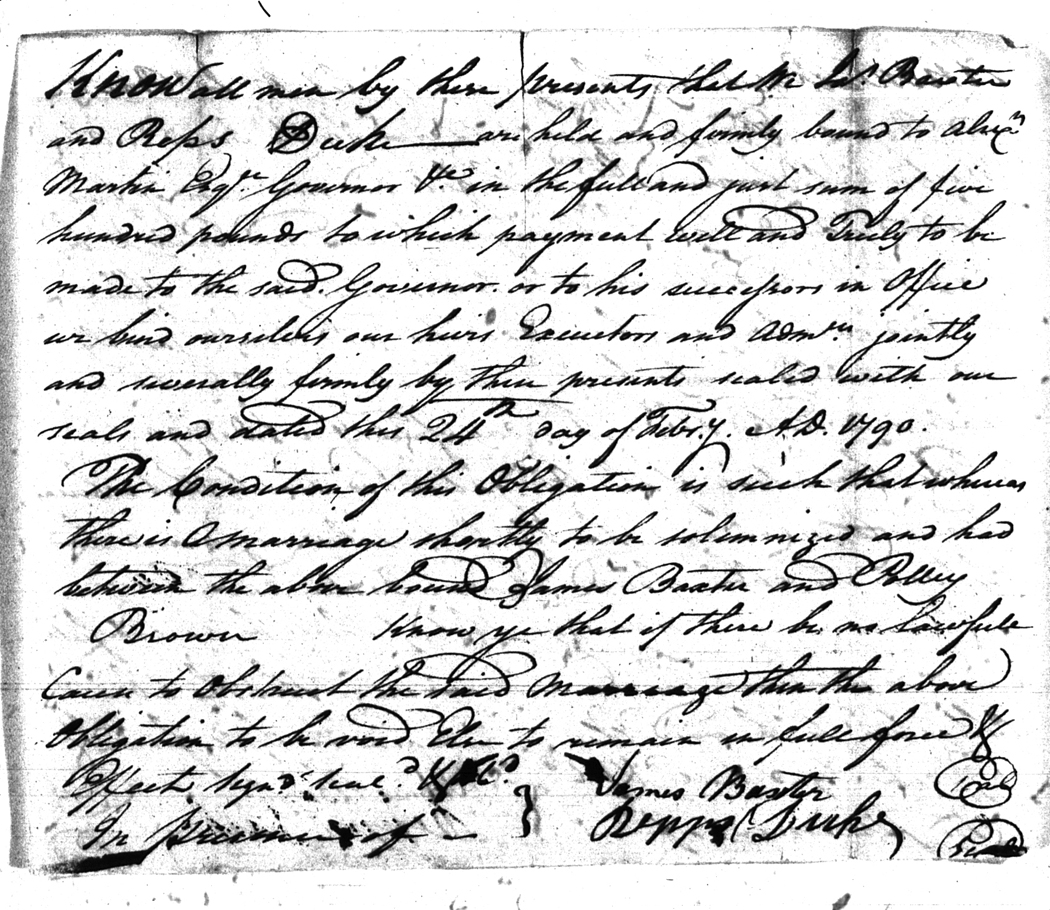 Know all men by these presents that We Jas Baxter
and Reps Duke are held and firmly bound to Alexr
Martin Esqr. Governor &c in the full and just sum of five
hundred pounds to which payment well and Truly to be
made to the said Governor or to his successors in Office
we bind ourselves our heirs Executors and Admrs. jointly
and severally firmly by these presents sealed with our
seals and dated this 24th day of Febry. A.D. 1790.
The Condition of this Obligation is such that whereas
there is a marriage shortly to be solemnized and had
between the above bound James Baxter and Polley
Brown Know ye that if there be no lawfull
Cause to Obstruct the said marriage then the above
Obligation to be void Else to remain in full force &
Effect Signd. seald. &
In Presence of } James Baxter Seal
Repps Duke Seal